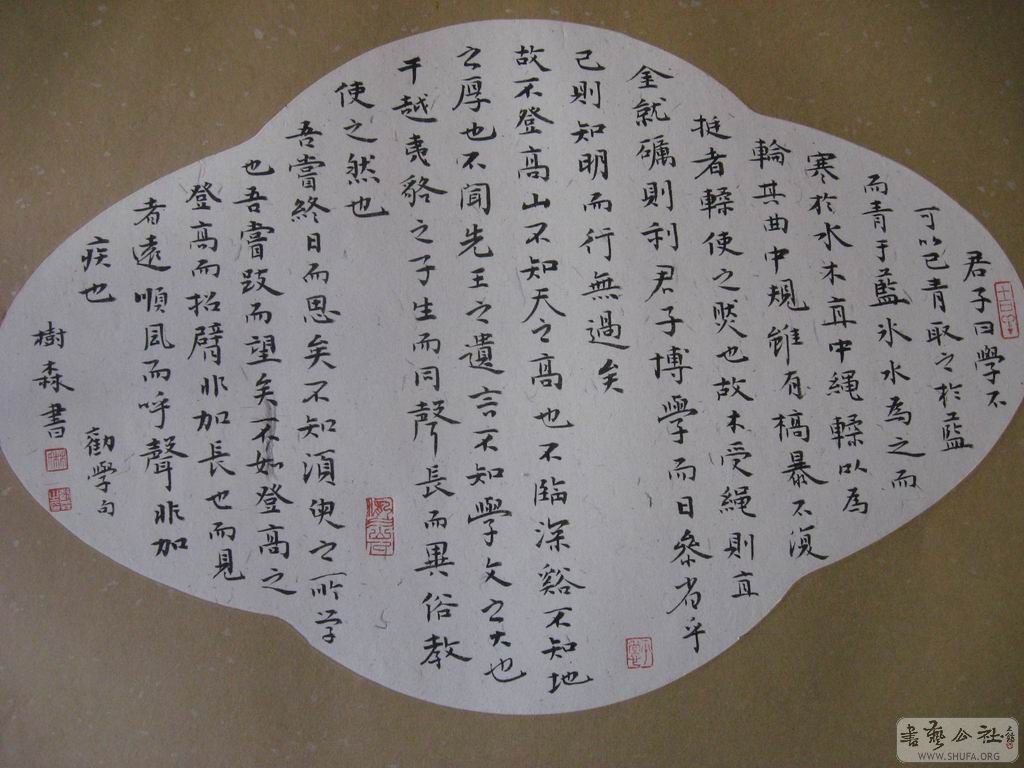 君子曰學不
可以已青取之於藍
而青于藍氷水為之而
寒於水木直中繩輮以為
輪其曲中規雖有槁暴不復
挺者輮使之然也故木受繩則直
金就礪則利君子博學而日叅省乎
己則知明而行無過矣
故不登高山不知天之高也不臨深谿不知地
之厚也不聞先王之遺言不知學文之大也
干越夷貉之子生而同聲長而異俗教
使之然也
吾嘗終日而思矣不知須臾之所学
也吾嘗跂而望矣不如登高之
登高而招臂非加長也而見
者遠順風而呼聲非加
疾也
勸學句
樹森書
書藝公社
WWW.SHUFA.ORG